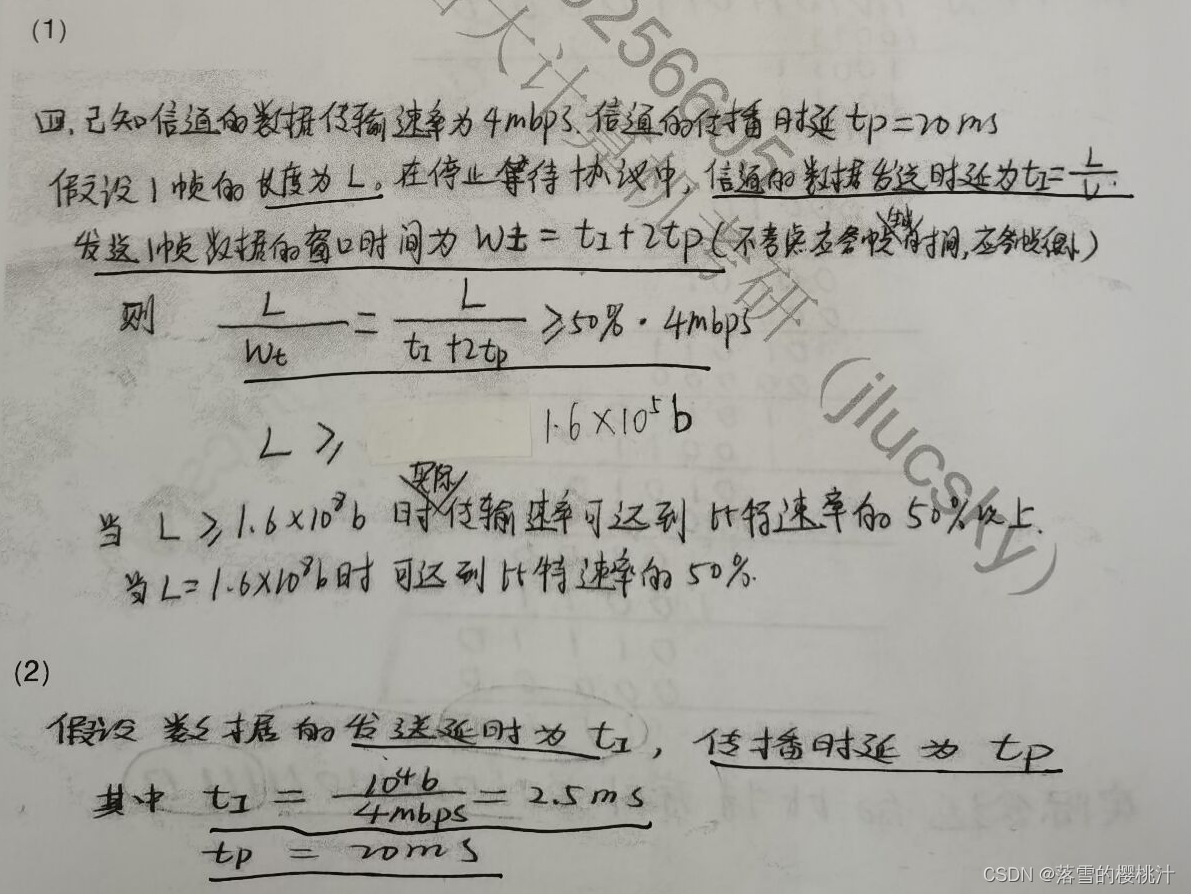 (1)
四、已知信道的数据传输速率为4mbps.信道的传播时延tp=20ms
假设1帧的长度为L。在停止等待协议中,信道的数据发送时延为tI=L/v.
发送1帧数据的窗口时间为Wt=tI+2tp(不考虑应答帧的时间,应答帧很小)
则 L/Wt = L/(tI+2tp) ≥50%·4mbps
L ≥ 1.6×10⁵b
实际
当 L≥1.6×10⁸b 时传输速率可达到比特速率的50%以上.
当L=1.6×10⁸b时可达到比特速率的50%.
(2)
假设数据的发送延时为tI,传播时延为tp
其中 tI = 10⁴b/4mbps = 2.5ms
tp = 20ms
大计算机考研(jlucsky)
CSDN @落雪的樱桃汁